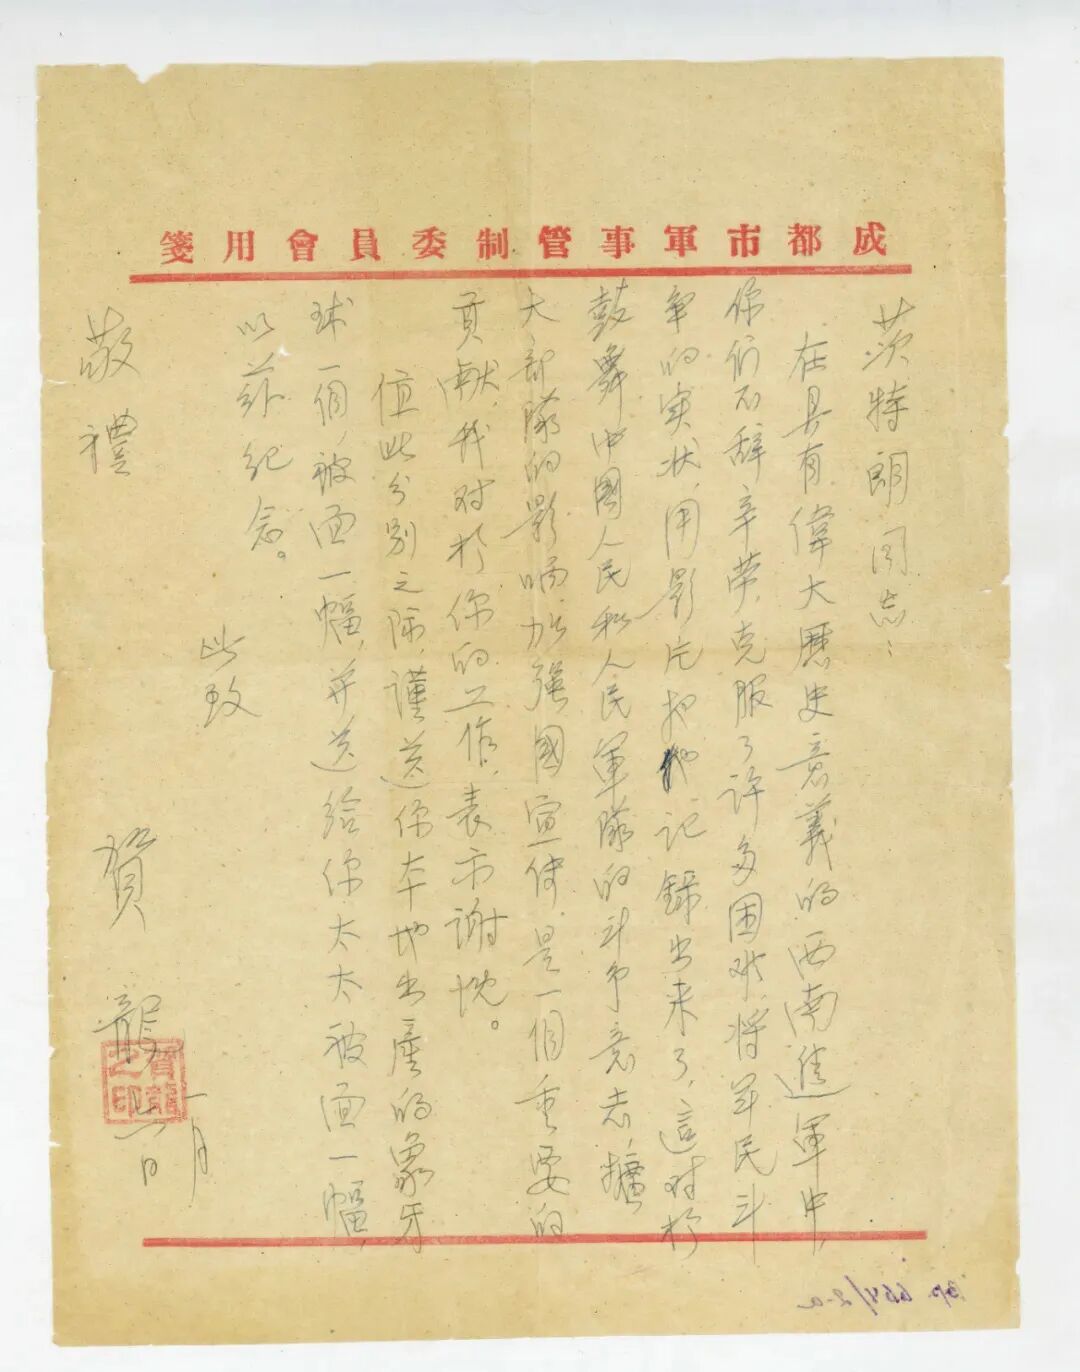 成都市軍事管制委員會用箋
茨特朗同志：
在具有偉大歷史意義的西南進軍中，
你们不辞辛劳，克服了许多困难，将军民斗
争的实状，用影片把他记錄出来了，這对於
鼓舞中國人民和人民軍隊的斗争意志，擴
大部隊的影响，加強國宣传，是一個重要的
貢献，我对於你的工作，表示謝忱。
值此分别之际，谨送你本地出産的象牙
球一個，被面一幅，并送给你太太被面一幅，
以兹纪念。
此致
敬禮
賀龍
一月
日
賀龍之印